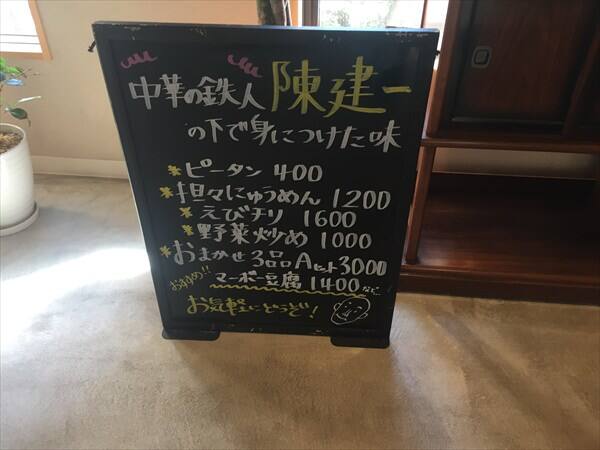 中華の鉄人 陳建一
の下で身につけた味
*ピータン 400
*担々にゅうめん 1200
*えびチリ 1600
*野菜炒め 1000
*おまかせ3品Aセット3000
おすすめ!! マーボー豆腐 1400 など…
お気軽にどうぞ!